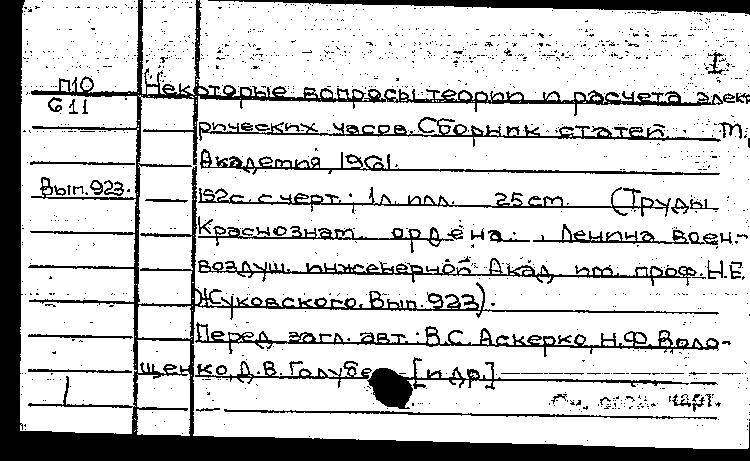 I
П10 Некоторые вопросы теории и расчета элект
G 11
рических часов. Сборник статей. М.,
Академия, 1961.
Вып. 923. 192с. с черт.; 1л. илл. 25 cm. (Труды
Краснознам. ордена Ленина воен.-
воздуш. инженерной Акад. им. проф. Н.Е.
Жуковского. Вып. 923).
Перед загл. авт.: В.С. Аскерко, Н.Ф. Воло-
щенко, Д.В. Голубе [и др.]
карт.